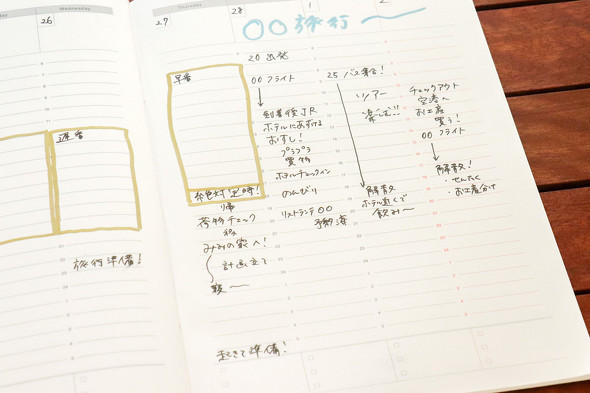 Wednesday
26
遅番
旅行準備!
Thursday
27
28
1
2
〇〇旅行〜
早番
絶対定時!
帰
荷物チェック
みみの家へ!
計画立て
寝〜
起きて準備!
20 出発
00 フライト
到着後JR
ホテルにあずける
おすし!
プラプラ
買物
ホテルチェックイン
のんびり
リストランテ〇〇
予約済
25 バス集合!
ツアー
楽しむ!!!
解散
ホテル近くで
飲み〜
チェックアウト
空港へ
お土産
買う!
00 フライト
解散!
・せんたく
・お土産分け